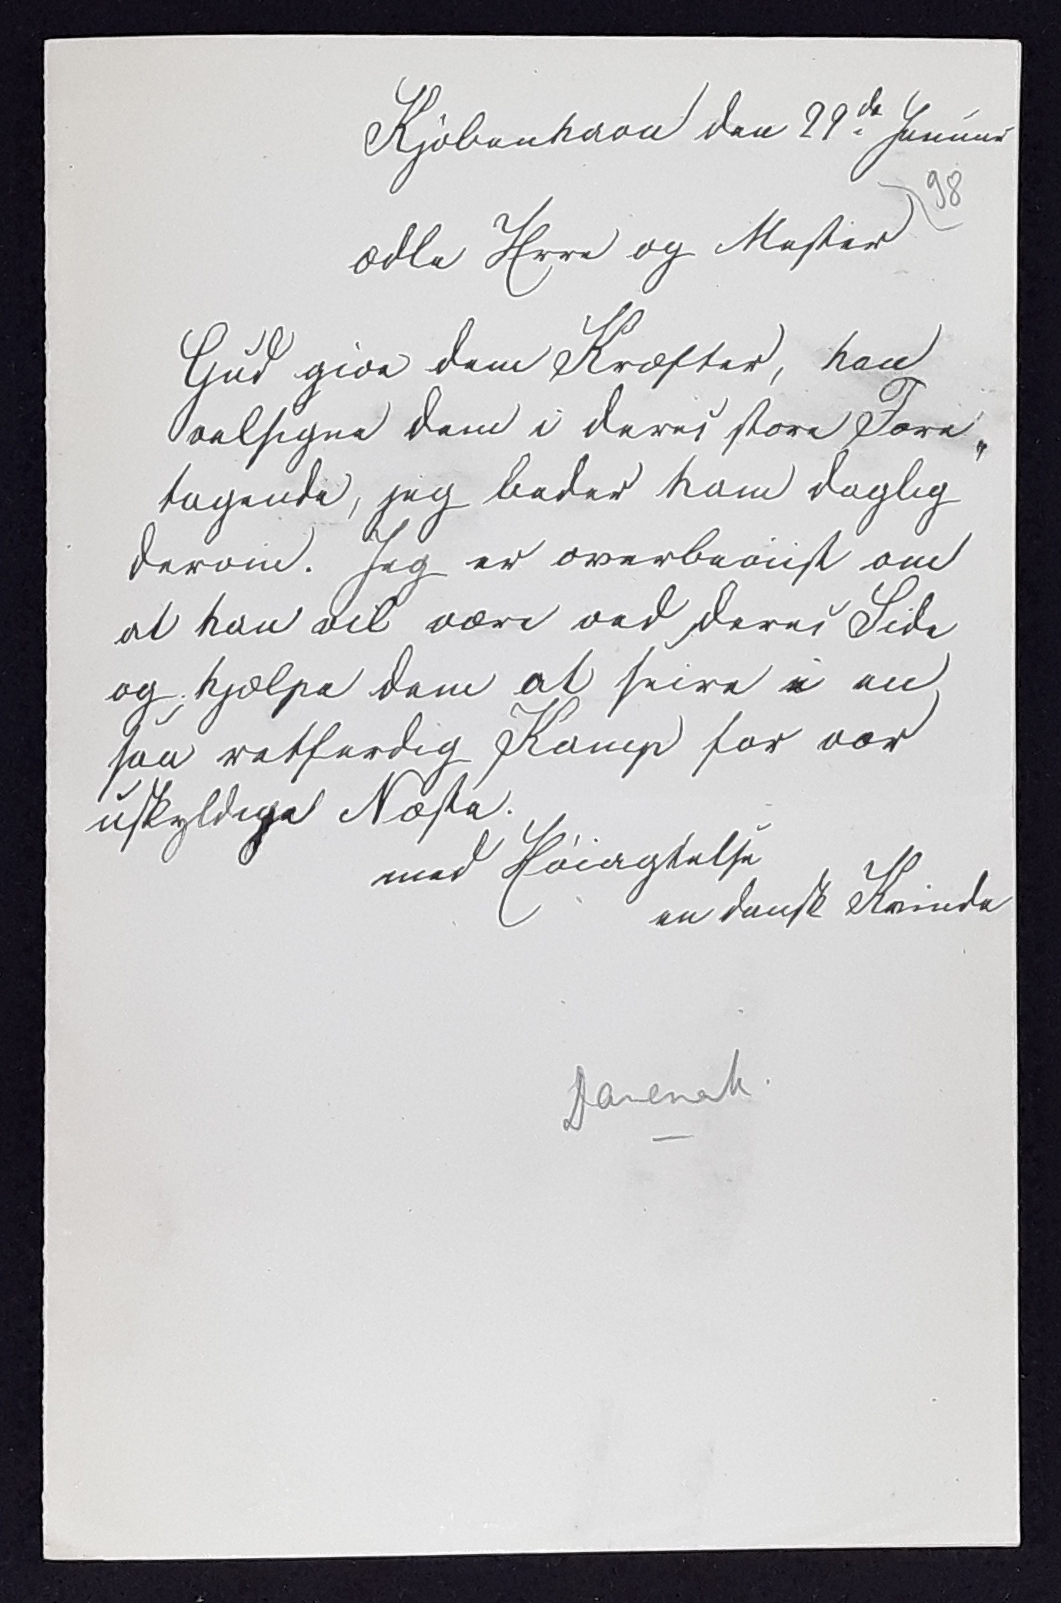 Kjöbenhavn den 29de Januar
98
ædle Herre og Mester
Gud give dem Kræfter, han
velsigne dem i deres store Fore„
tagende, jeg beder ham daglig
derom. Jeg er overbeviist om
at han vil være ved deres Side
og hjælpe dem at seire i en
saa retferdig Kamp for vor
uskyldige Næste.
med Höiagtelse
en dansk Kvinde